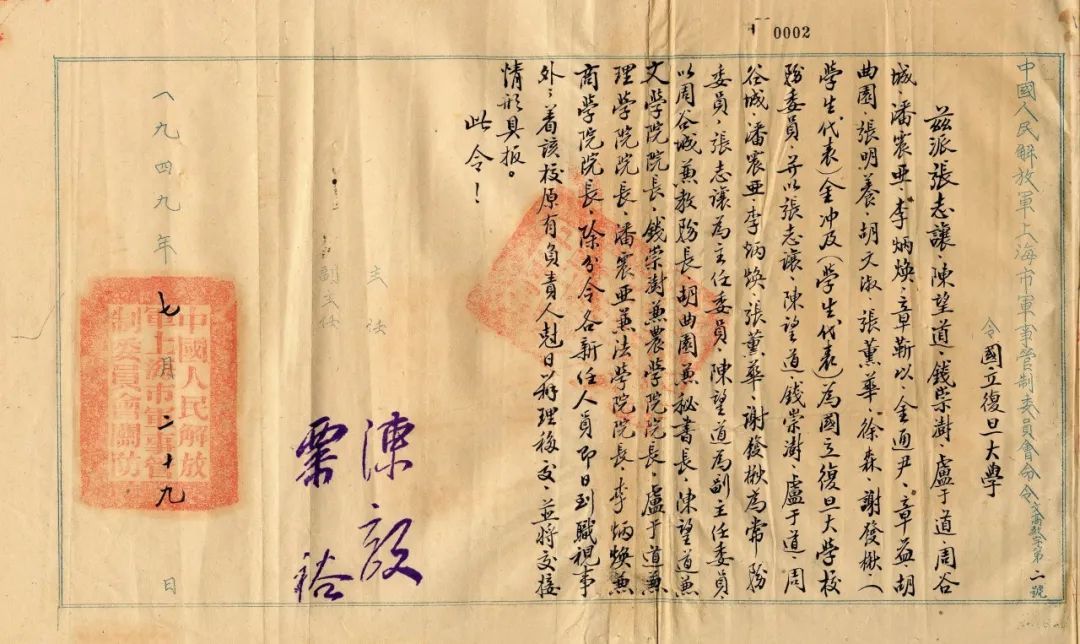 0002
中國人民解放軍上海市軍事管制委員會命令
文高教字第二號
令國立復旦大學
茲派張志讓、陳望道、錢崇澍、盧于道、周谷
城、潘震亞、李炳焕、章靳以、金通尹、章益、胡
曲園、張明養、胡文淑、張薰華、徐森、謝發楸、(
學生代表)金冲及(學生代表)為國立復旦大學校
務委員、并以張志讓、陳望道、錢崇澍、盧于道、周
谷城、潘震亞、李炳焕、張薰華、謝發楸為常務
委員、張志讓為主任委員、陳望道為副主任委員、
以周谷城兼教務長、胡曲園兼秘書長、陳望道兼
文學院院長、錢崇澍兼農學院院長、盧于道兼
理學院院長、潘震亞兼法學院院長、李炳焕兼
商學院院長、除分令各新任人員即日到職視事
外、着該校原有負責人尅日辦理移交、並將交接
情形具报。
此令！
主任 陳毅
副主任 粟裕
一九四九年七月二十九日
中國人民解放
軍上海市軍事管
制委員會關防